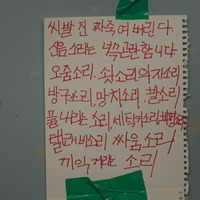 씨발 진짜 죽여 버린다
싸우는 소리는 녹음 합니다
오줌소리, 싯소리 의자소리
방구소리, 망치소리, 발소리
물 나리는 소리, 세탁기소리
텔레비소리 싸움 소리
끼익 거리는 소리